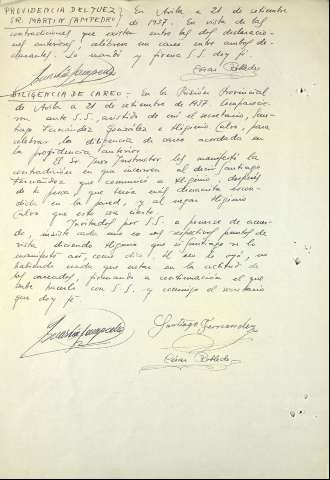 PROVIDENCIA DEL JUEZ } En Avila a 21 de setiembre
SR. MARTIN SAMPEDRO } de 1937. En vista de las
contradicciones que existen entre las dos declaracio-
nes anteriores, celébrese un careo entre ambos de-
clarantes. Lo mandó y firma S.S. doy fé.
DILIGENCIA DE CAREO.- En la Prisión Provincial
de Avila a 21 de setiembre de 1937. Comparecie-
ron ante S.S., asistido de mí el secretario, San-
tiago Fernández González e Higinio Calvo, para
celebrar la diligencia de careo acordada en
la providencia anterior.
El Sr. Juez Instructor les manifestó la
contradicción en que incurren al decir Santiago
Fernández que comunicó a Higinio, después
de la cena, que tenía una escon-
dida en la pared, y al negar Higinio
Calvo que esto sea cierto.
Invitados por S.S. a ponerse de acuer-
do, insiste cada uno en sus respectivos puntos de
vista diciendo Higinio que si Santiago se lo
manifestó así, como dice, él no lo oyó, no
habiendo nada que notar en la actitud de
los careados, firmando a continuación el que
sabe hacerlo con S.S. y conmigo el secretario
que doy fé.
Santiago Fernandez